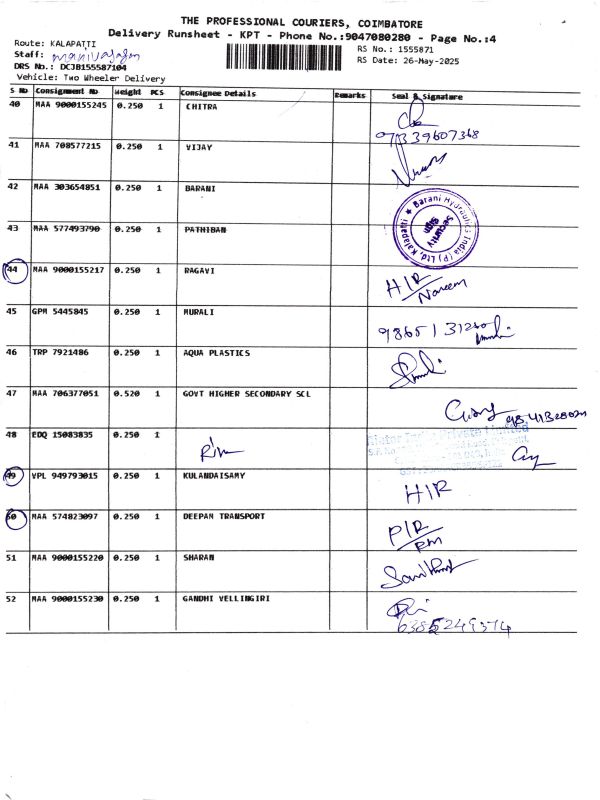 THE PROFESSIONAL COURIERS, COIMBATORE
Delivery Runsheet - KPT - Phone No.:9047080280 - Page No.:4
Route: KALAPATTI
RS No.: 1555871
Staff:
RS Date: 26-May-2025
DRS No.: DCJB155587104
Vehicle: Two Wheeler Delivery
S No Consignment No Weight PCS Consignee Details Remarks Seal & Signature
40 MAA 9000155245 0.250 1 CHITRA
41 MAA 708577215 0.250 1 VIJAY
42 MAA 303654851 0.250 1 BARANI
Barani Hydraulics India (P) Ltd, Kalapatti ★
Security
Sign
43 MAA 577493790 0.250 1 PATHIBAN
44 MAA 9000155217 0.250 1 RAGAVI H/R
Naveem
45 GPM 5445845 0.250 1 MURALI
46 TRP 7921486 0.250 1 AQUA PLASTICS
47 MAA 706377051 0.520 1 GOVT HIGHER SECONDARY SCL
48 EDQ 15083835 0.250 1
Private Limited
49 VPL 949793015 0.250 1 KULANDAISAMY H/R
50 MAA 574823097 0.250 1 DEEPAN TRANSPORT P/R
51 MAA 9000155220 0.250 1 SHARAN
52 MAA 9000155230 0.250 1 GANDHI VELLINGIRI